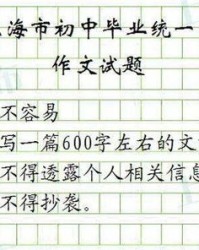 海市初中毕业统一
作文试题
不容易
写一篇600字左右的文
不得透露个人相关信息
不得抄袭。